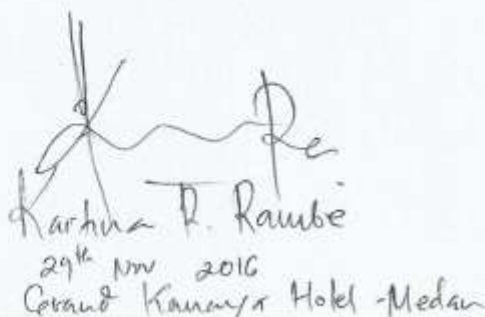 Kartina R. Rambe
29th Nov 2016
Grand Kanaya Hotel - Medan